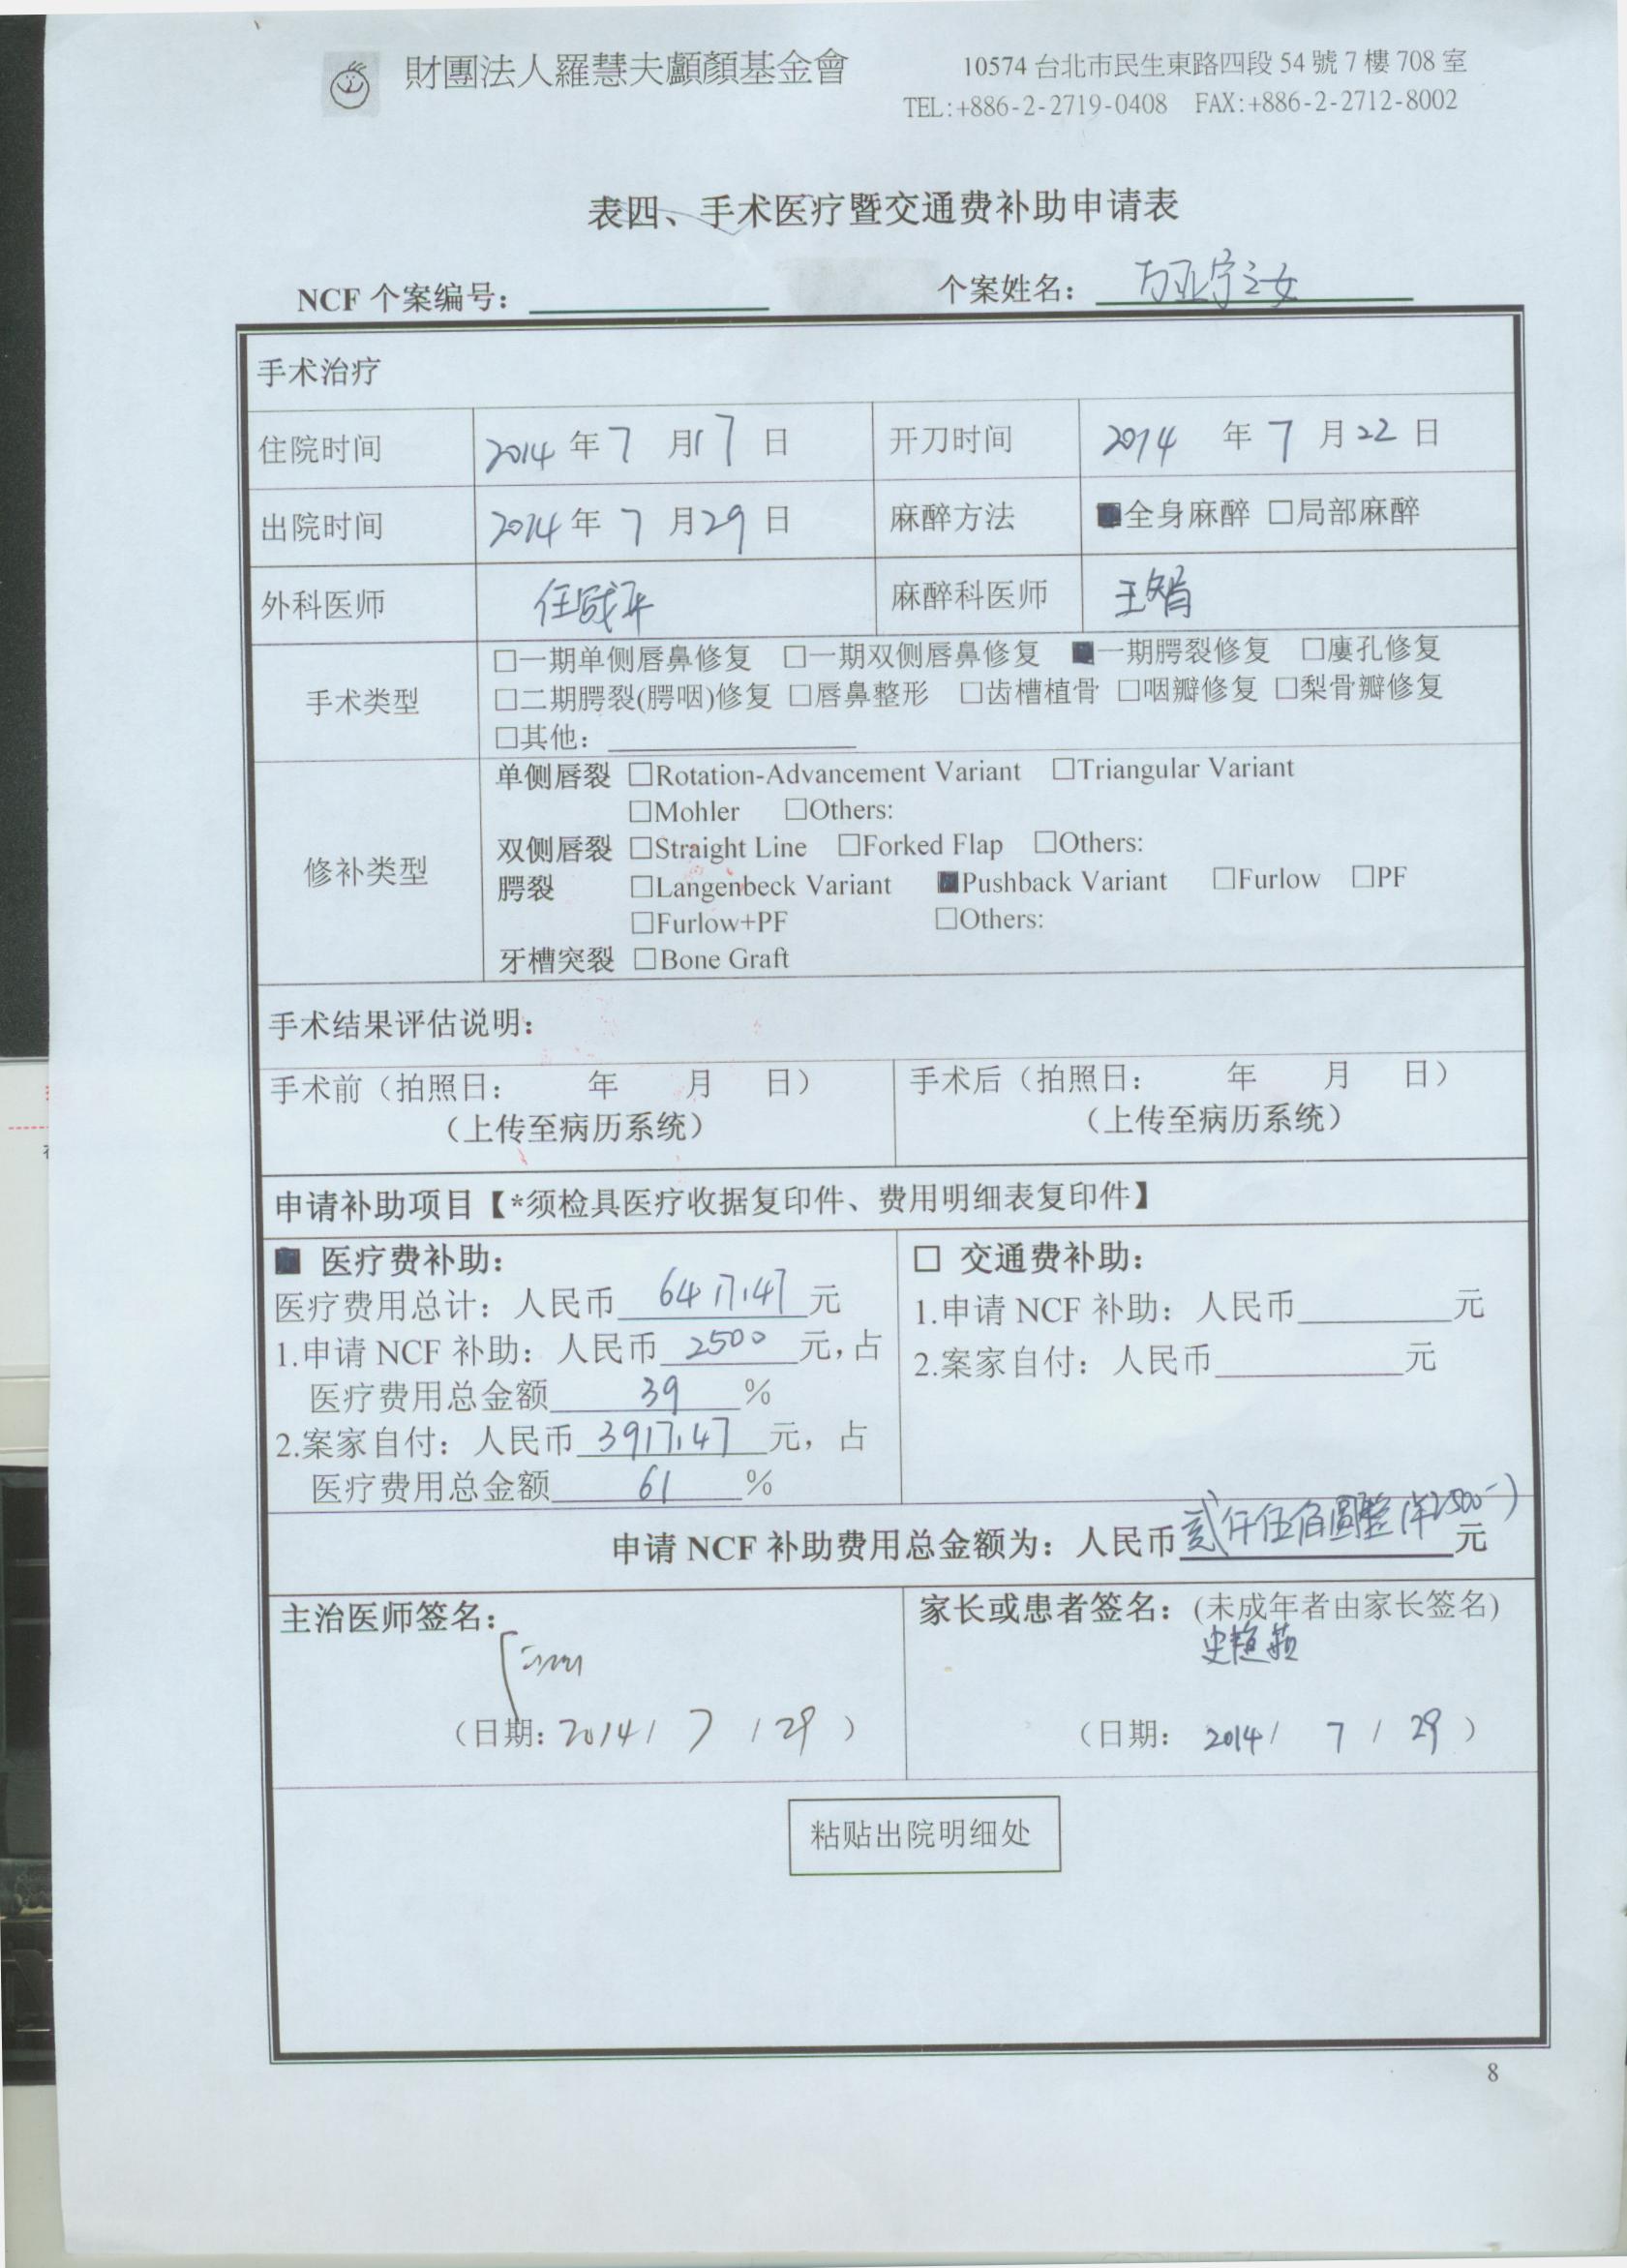 財團法人羅慧夫顱顏基金會
10574 台北市民生東路四段 54 號 7 樓 708 室
TEL:+886-2-2719-0408 FAX:+886-2-2712-8002
表四、手术医疗暨交通费补助申请表
NCF 个案编号:
个案姓名: 方亚宁之女
手术治疗
住院时间 2014 年 7 月 17 日 开刀时间 2014 年 7 月 22 日
出院时间 2014 年 7 月 29 日 麻醉方法 ■全身麻醉 □局部麻醉
外科医师 任战平 麻醉科医师 王娟
手术类型
□一期单侧唇鼻修复 □一期双侧唇鼻修复 ■一期腭裂修复 □廔孔修复
□二期腭裂(腭咽)修复 □唇鼻整形 □齿槽植骨 □咽瓣修复 □梨骨瓣修复
□其他:
修补类型
单侧唇裂 □Rotation-Advancement Variant □Triangular Variant
□Mohler □Others:
双侧唇裂 □Straight Line □Forked Flap □Others:
腭裂 □Langenbeck Variant ■Pushback Variant □Furlow □PF
□Furlow+PF □Others:
牙槽突裂 □Bone Graft
手术结果评估说明:
手术前（拍照日: 年 月 日）
（上传至病历系统）
手术后（拍照日: 年 月 日）
（上传至病历系统）
申请补助项目【*须检具医疗收据复印件、费用明细表复印件】
■ 医疗费补助:
医疗费用总计: 人民币 6417.47 元
1.申请 NCF 补助: 人民币 2500 元, 占
医疗费用总金额 39 %
2.案家自付: 人民币 3917.47 元, 占
医疗费用总金额 61 %
□ 交通费补助:
1.申请 NCF 补助: 人民币 元
2.案家自付: 人民币 元
申请 NCF 补助费用总金额为: 人民币 贰仟伍佰圆整(¥2500-) 元
主治医师签名:
（日期: 2014 / 7 / 29 ）
家长或患者签名: (未成年者由家长签名)
（日期: 2014 / 7 / 29 ）
粘贴出院明细处
8